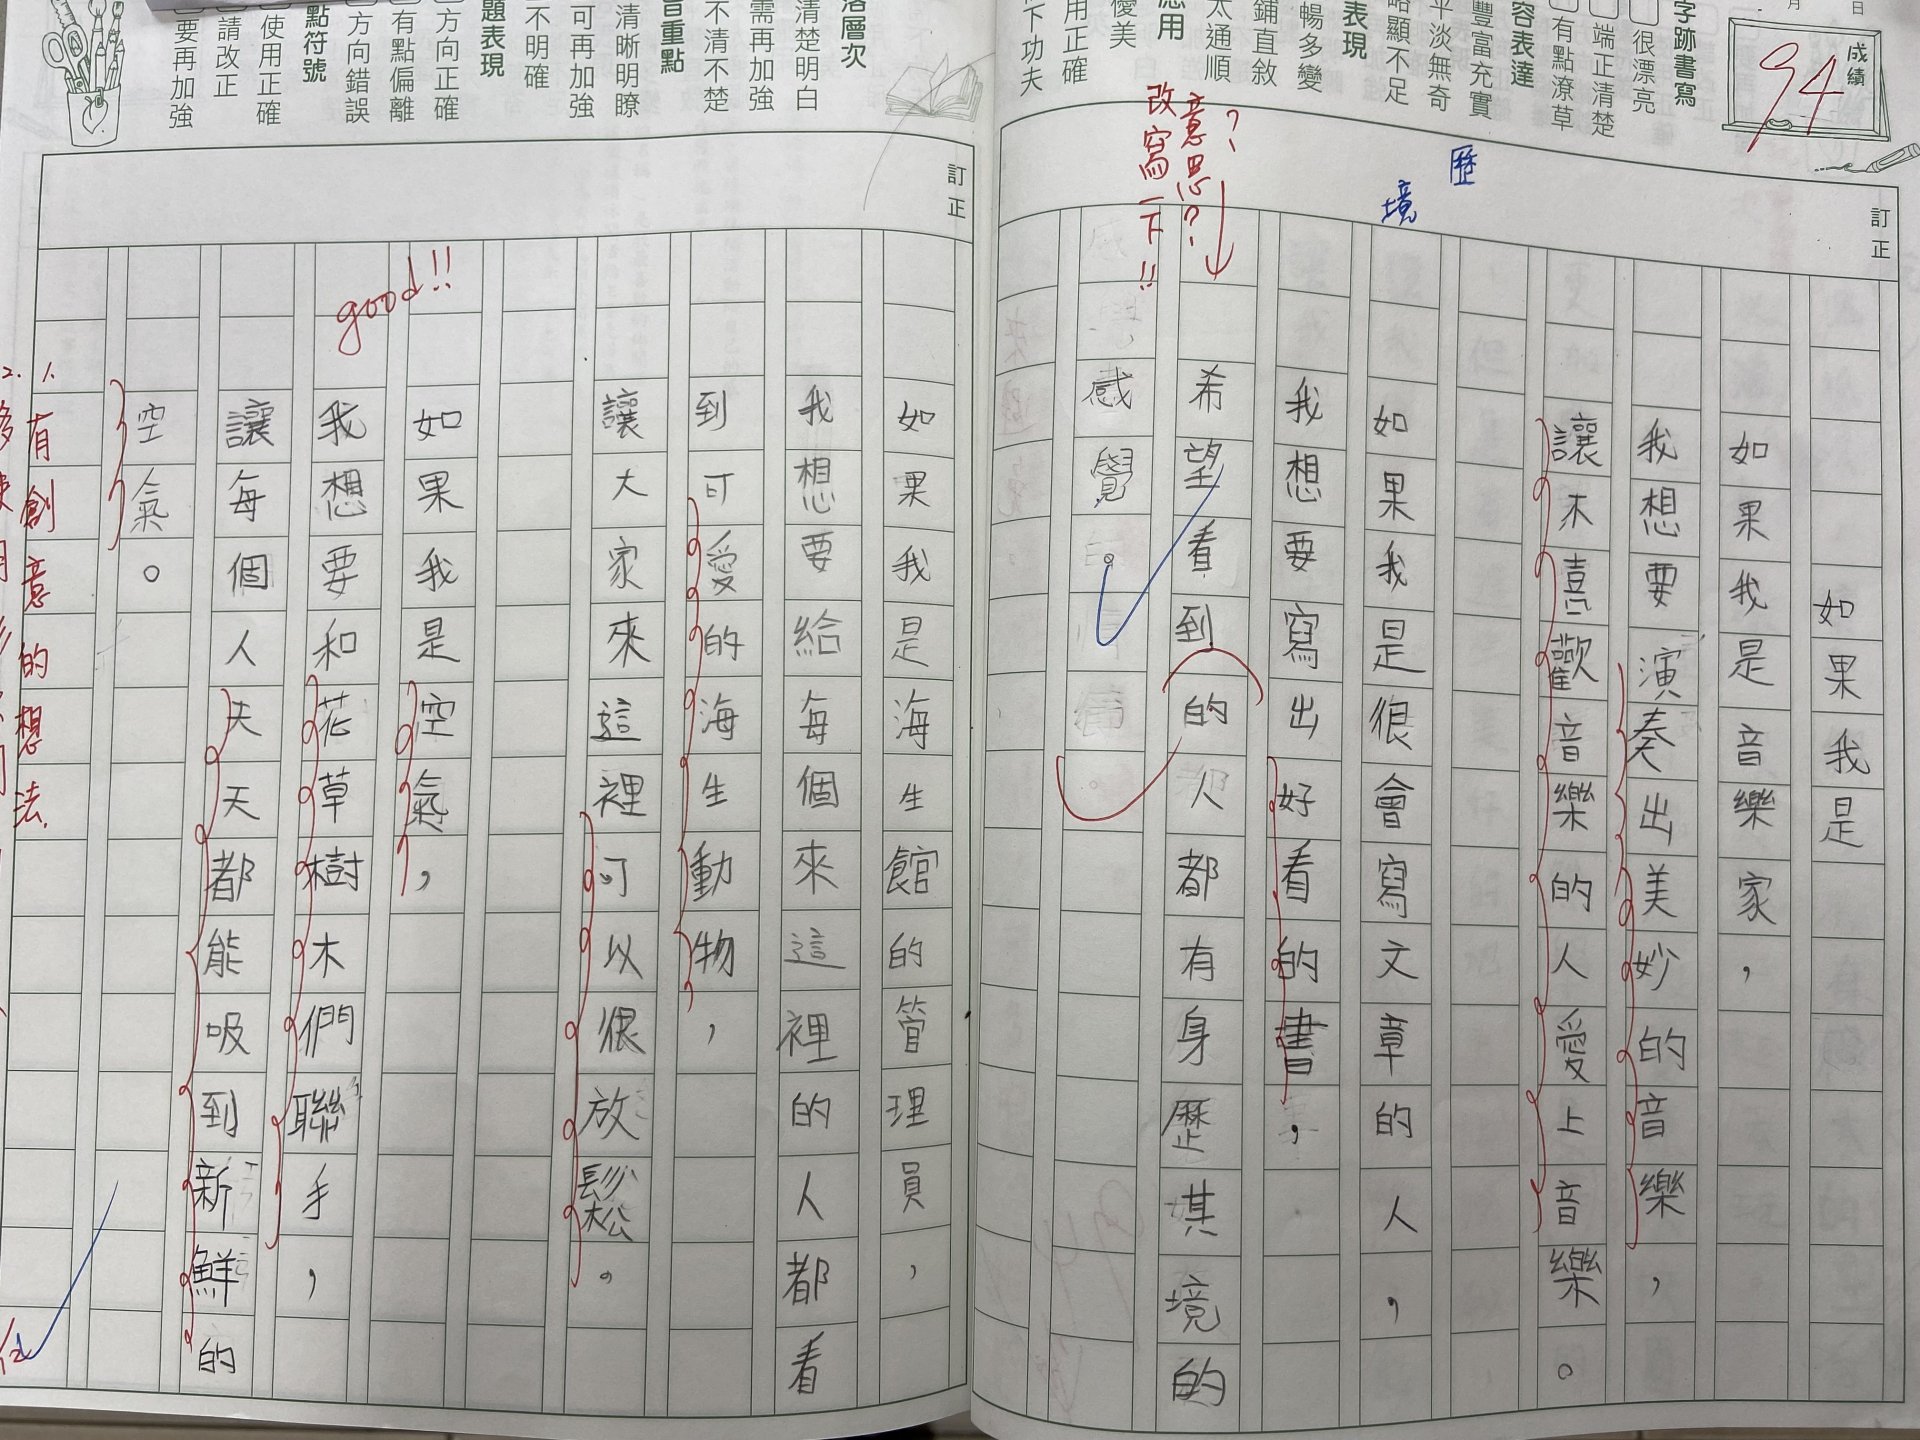 日
月
成績
94
字跡書寫
很漂亮
端正清楚
有點潦草
容表達
豐富充實
平淡無奇
略顯不足
表現
暢多變
鋪直敘
太通順
應用
優美
用正確
下功夫
訂正
歷
境
?
意思?
改寫一下!!
如果我是
如果我是音樂家,
我想要演奏出美妙的音樂,
讓不喜歡音樂的人愛上音樂。
如果我是很會寫文章的人,
我想要寫出好看的書,
希望看到的人都有身歷其境的
感覺。
落層次
清楚明白
需再加強
不清不楚
旨重點
清晰明瞭
可再加強
不明確
題表現
方向正確
有點偏離
方向錯誤
點符號
使用正確
請改正
要再加強
訂正
如果我是海生館的管理員,
我想要給每個來這裡的人都看
到可愛的海生動物,
讓大家來這裡可以很放鬆。
good!!
如果我是空氣,
我想要和花草樹木們聯手,
讓每個人天天都能吸到新鮮的
空氣。
1.有創意的想法.
2.